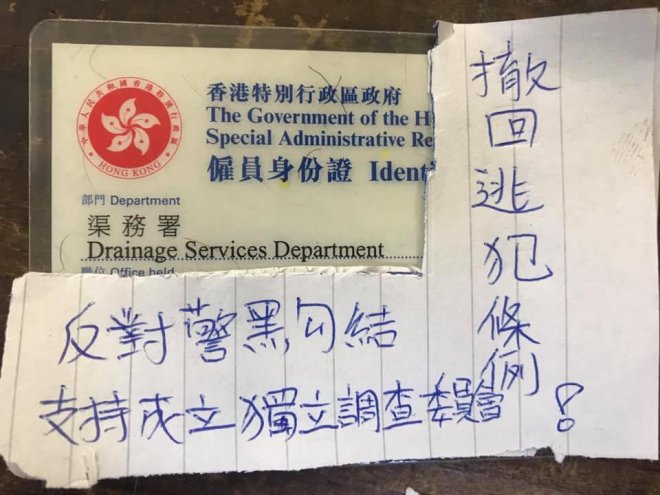 香港特別行政區政府
The Government of the H
Special Administrative Re
僱員身份證 Identi
中華人民共和國香港特別行政區
HONG KONG
部門 Department
渠務署
Drainage Services Department
職位 Office held
撤回逃犯條例
反對警黑勾結
支持成立獨立調查委員會!